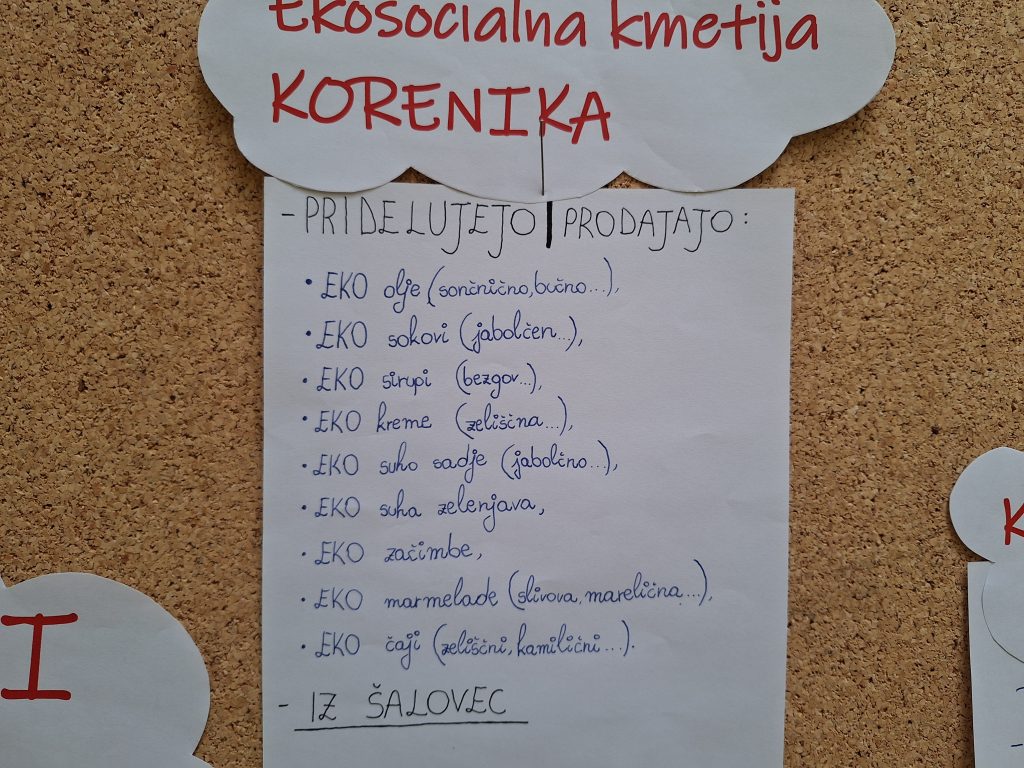 Ekosocialna kmetija
KORENIKA
- PRIDELUJEJO | PRODAJAJO:
• EKO olje (sončnično, bučno...),
• EKO sokovi (jabolčen...),
• EKO sirupi (bezgov...),
• EKO kreme (zeliščna...),
• EKO suho sadje (jabolčno...),
• EKO suha zelenjava,
• EKO začimbe,
• EKO marmelade (slivova, marelična...),
• EKO čaji (zeliščni, kamilični...).
- IZ ŠALOVEC
I
K